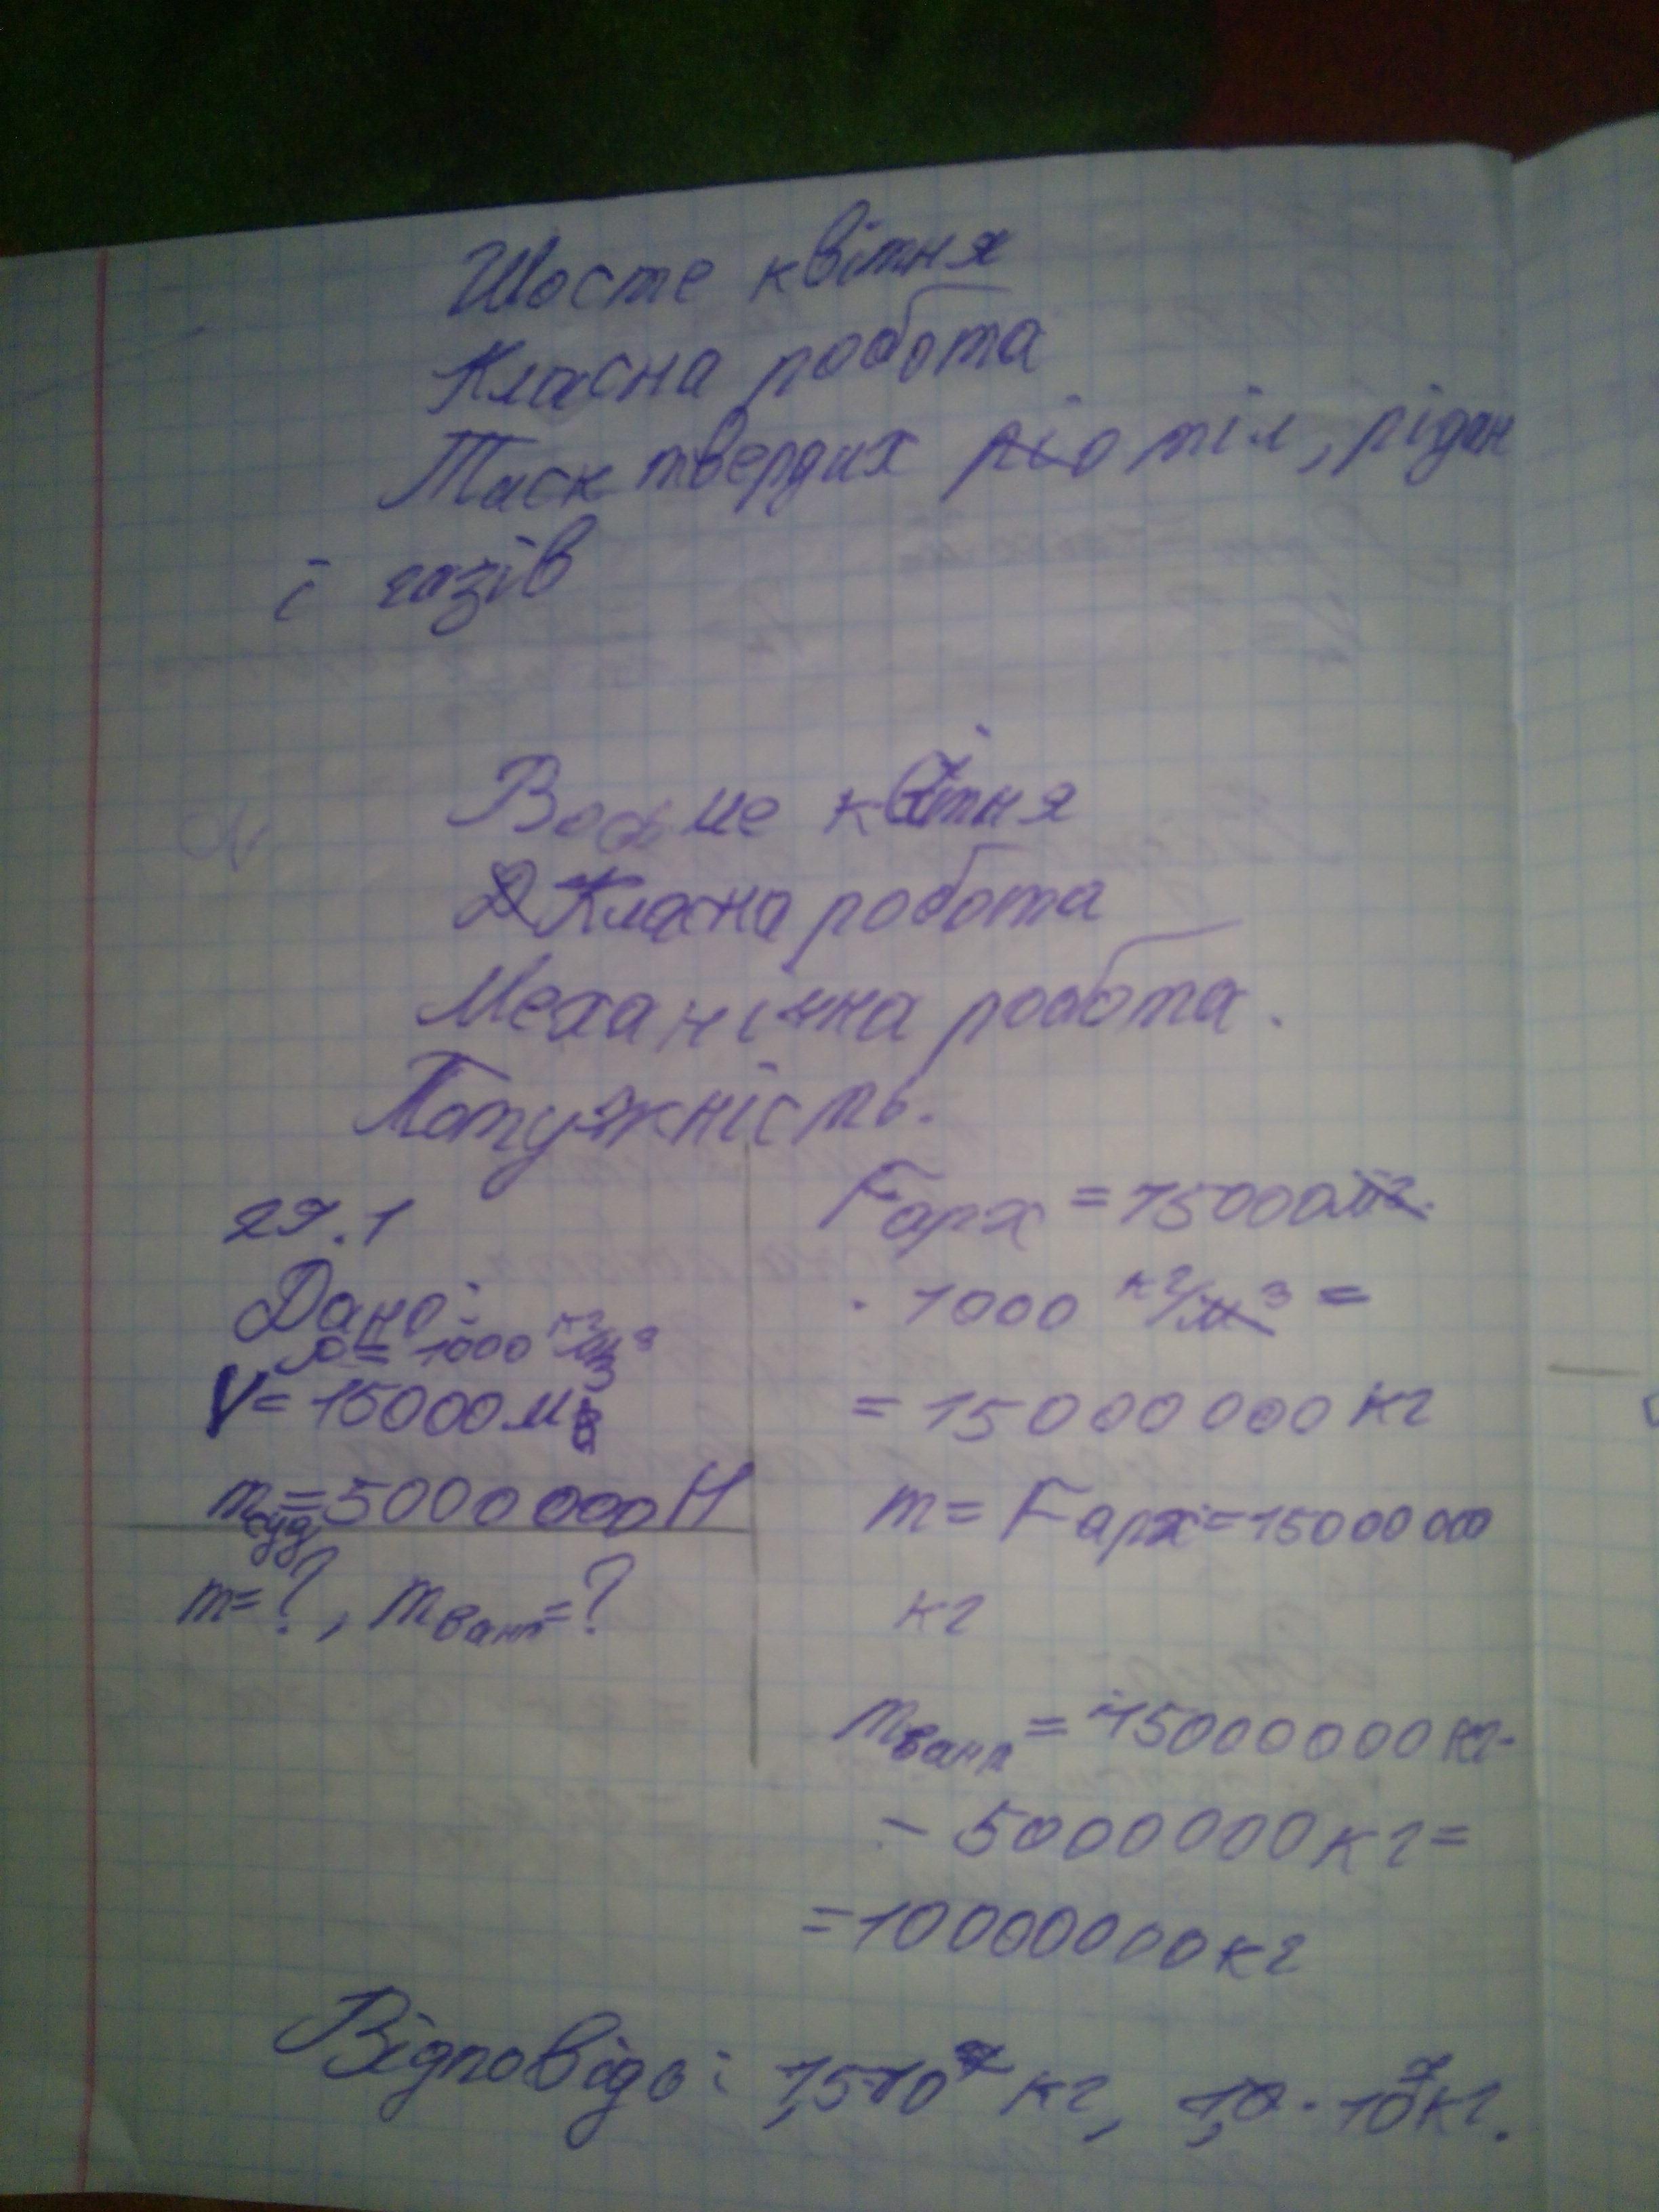 Шосте квітня
Класна робота
Тиск твердих тіл, рідин
і газів
Восьме квітня
Класна робота
Механічна робота.
Потужність.
29.1
Дано:
ρ = 1000 кг/м³
V = 15000 м³
mсуд = 5000 000 Н
m = ?, mвант = ?
Fарх = 15000 м³ ·
· 1000 кг/м³ =
= 15 000 000 кг
m = Fарх = 15000 000
кг
mвант = 15000000 кг -
- 5000000 кг =
= 10000000 кг
Відповідь: 1,5·10⁷ кг, 1,0 · 10⁷ кг.